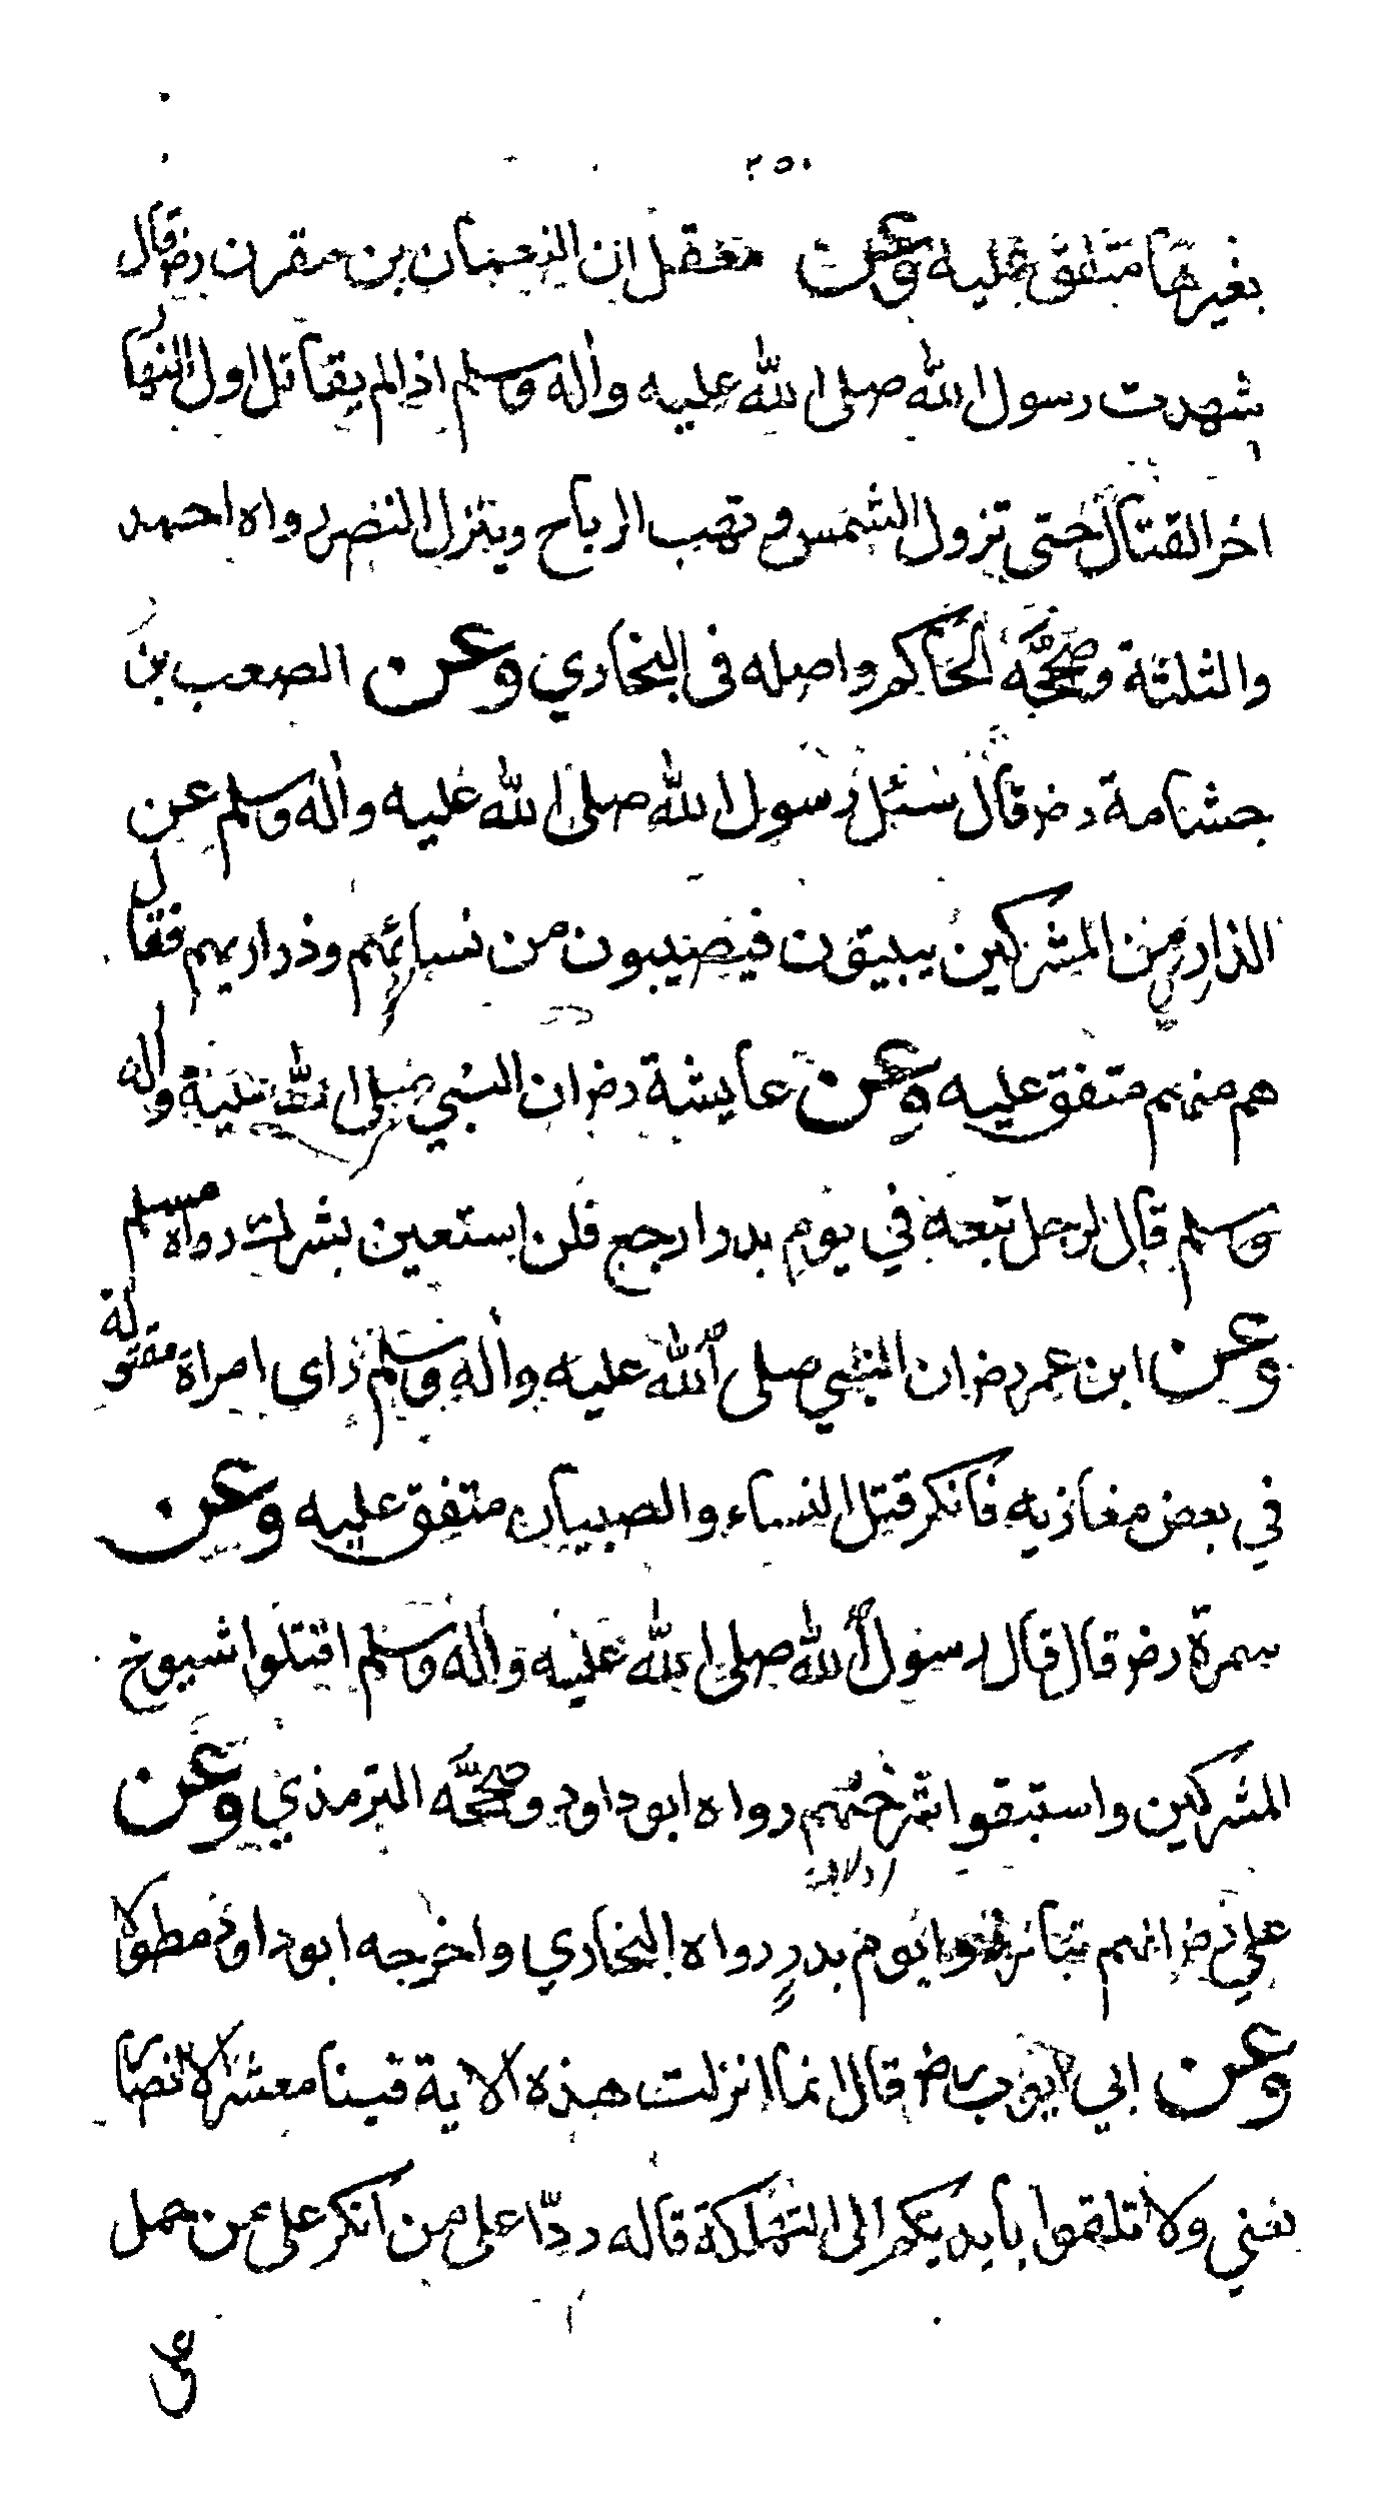 ٢٥٠
بغيرها متفق عليه وعن معقل ان النعمان بن مقرن رض قال
شهدت رسول الله صلى الله عليه واله وسلم اذا لم يقاتل اول النهار
اخر القتال حتى تزول الشمس و تهب الرياح وينزل النصر رواه احمد
والثلثة وصححه الحاكم واصله فى البخاري وعن الصعب بن
جثامة رض قال سئل رسول الله صلى الله عليه واله وسلم عن
الذاري من المشركين يبيتون فيصيبون من نسائهم وذراريهم فقال
هم منهم متفق عليه وعن عايشة رض ان النبي صلى الله عليه واله
وسلم قال لرجل تبعه في يوم بدر ارجع فلن استعين بشرك رواه مسلم
وعن ابن عمر رض ان النبي صلى الله عليه واله وسلم راى امراة مقتولة
في بعض مغازيه فانكر قتل النساء والصبيان متفق عليه وعن
سمرة رض قال قال رسول الله صلى الله عليه واله وسلم اقتلوا شيوخ
المشركين واستبقوا شرخهم رواه ابو داود وصححه الترمذي وعن
علي رض انهم تبارزوا يوم بدر رواه البخاري واخرجه ابو داود مطولا
وعن ابي ايوب رض قال انما انزلت هذه الاية فينا معشر الانصار
يعني ولا تلقوا بايديكم الى التهلكة قاله ردّا على من انكر على من حمل
على